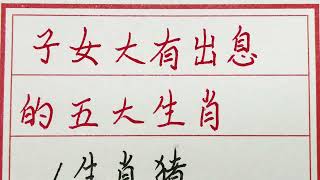 子女大有出息
的五大生肖
1生肖猪